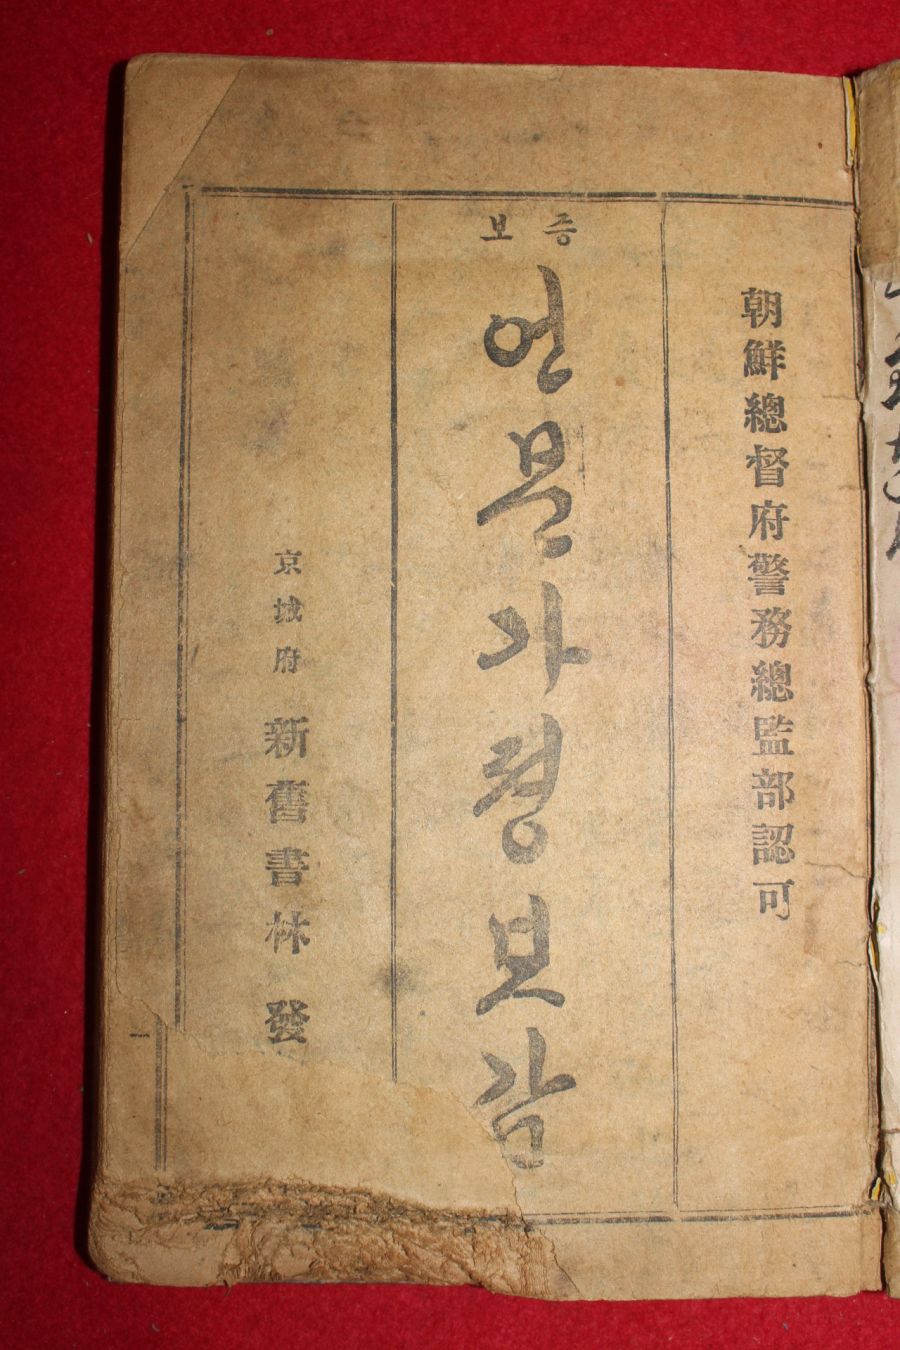 朝鮮總督府警務總監部認可
증보
언문가뎡보감
京城府 新舊書林 發
一